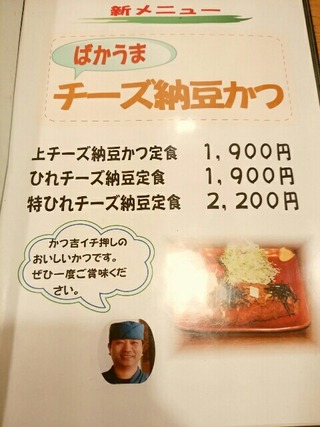 新メニュー
ばかうま
チーズ納豆かつ
上チーズ納豆かつ定食 1,900円
ひれチーズ納豆定食 1,900円
特ひれチーズ納豆定食 2,200円
かつ吉イチ押しの
おいしいかつです。
ぜひ一度ご賞味くだ
さい。